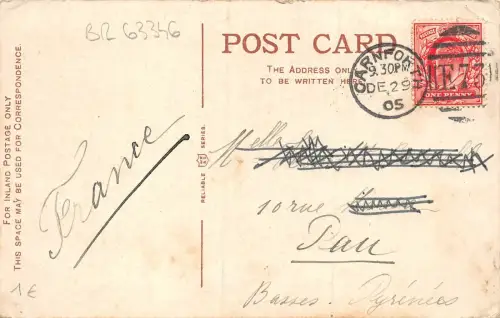 BR 63356
POST CARD
THE ADDRESS ONLY
TO BE WRITTEN HERE
FOR INLAND POSTAGE ONLY
THIS SPACE MAY BE USED FOR CORRESPONDENCE.
RELIABLE SERIES.
CARNFORTH
9.30PM
DE 29
05
E73
ONE PENNY
France
Melle
10 rue
Pau
Basses-Pyrénées
1€